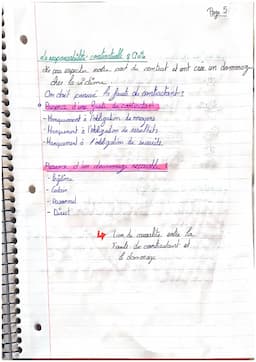 Page 5
La responsabilité contractuelle & Civile
de pas respecter notre part du contrat et ont crée un dommage
chez la victime
On doit prouver la faute de contractant :
Présence d'une faute du contractant
- Manquement à l'obligation de moyens
- Manquement à l'obligation de résultats
- Manquement à l'obligation de sécurité
Présence d'un dommage
- légitime
- Certain
- Personnel
- Direct
↳ Lien de causalité entre la
faute du contractant et
le dommage